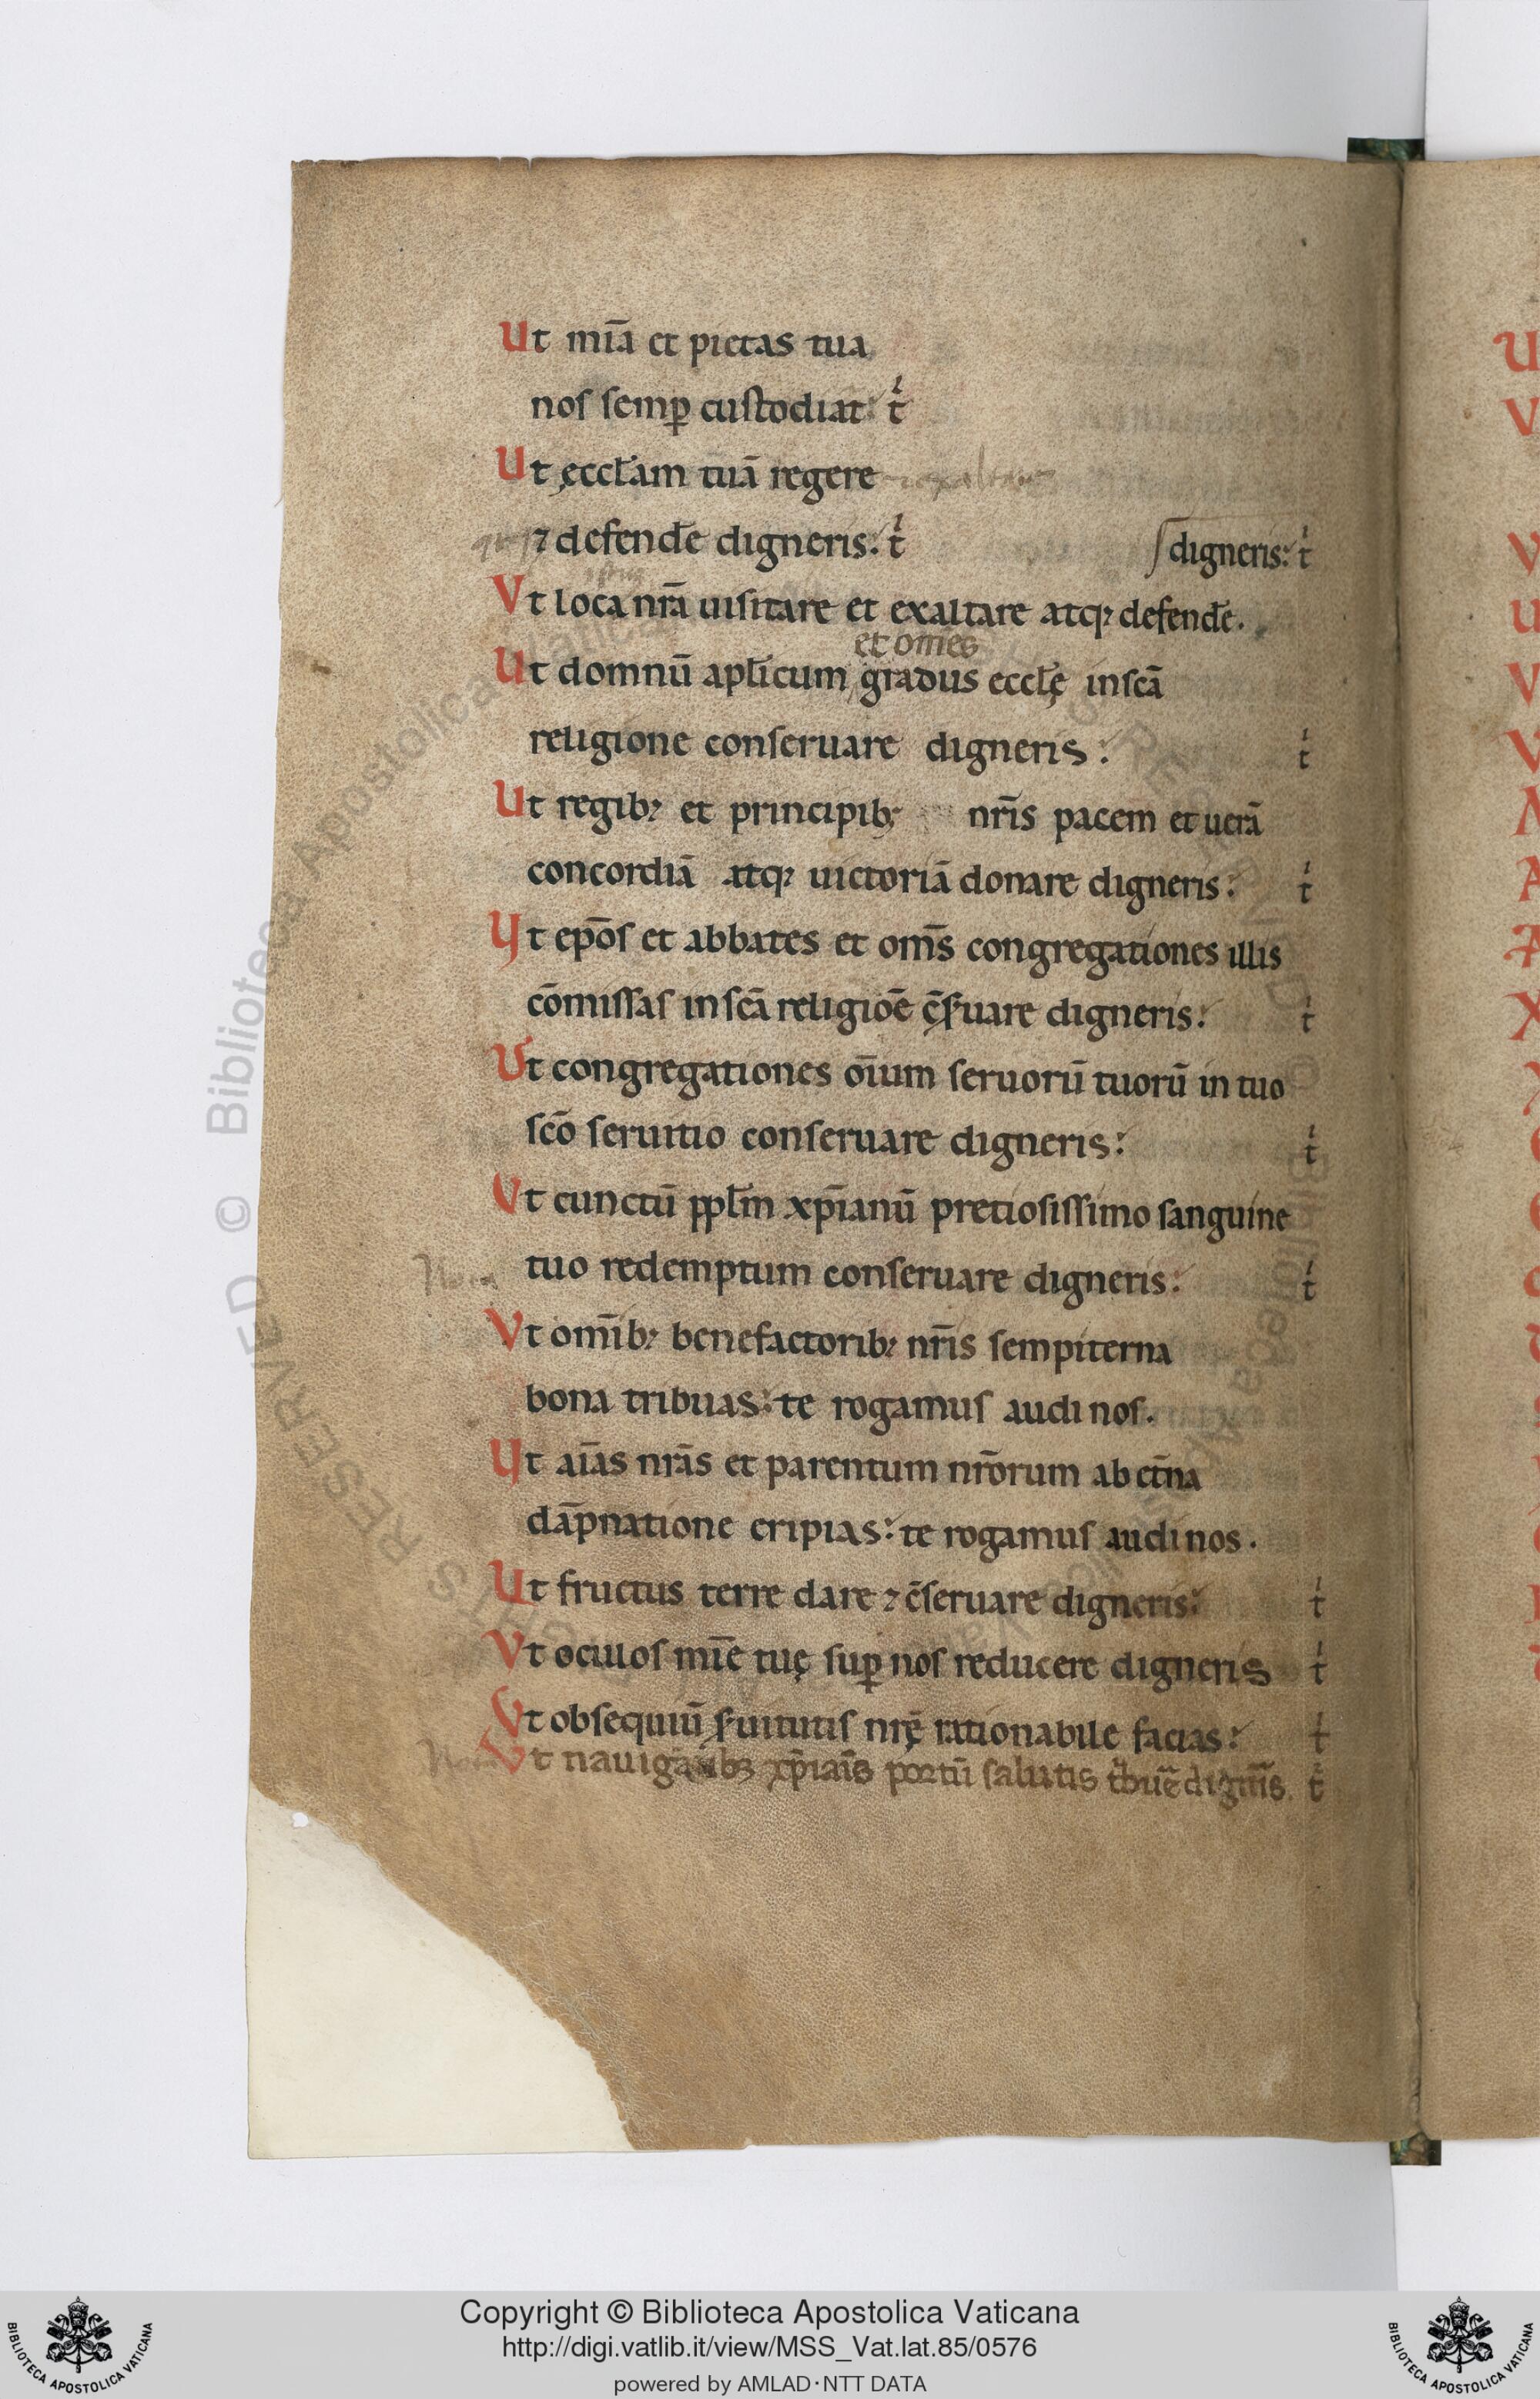 Ut mia̅ et pietas tua
nos semꝑ custodiat: t̍
Ut ęccl̅am tua̅ regere
⁊ defende̅ digneris: t̍
digneris: t̍
Vt loca nr̅a uisitare et exaltare atq; defende̅.
et om̅es
Ut domnu̅ apl̅icum gradus eccl̅ę in sc̅a
religione conseruare digneris: t̍
Ut regib; et principib; nr̅is pacem et uera̅
concordia̅ atq; uictoria̅ donare digneris: t̍
Ut ep̅os et abbates et om̅s congregationes illis
co̅missas in sc̅a religio̅e c̅seruare digneris: t̍
Ut congregationes oi̅um seruoru̅ tuoru̅ in tuo
sc̅o seruitio conseruare digneris: t̍
Ut cunctu̅ ppl̅m xp̅ianu̅ pretiosissimo sanguine
tuo redemptum conseruare digneris: t̍
Vt om̅ib; benefactorib; nr̅is sempiterna
bona tribuas: te rogamus audi nos.
Ut ai̅as nr̅as et parentum nr̅orum ab et̅na
da̅pnatione eripias: te rogamus audi nos.
Ut fructus terre dare ⁊ c̅seruare digneris: t̍
Vt oculos mi̅e tuę suꝑ nos reducere digneris t̍
Ut obsequiu̅ s̅uitutis nr̅ę rationabile facias: t̍
Vt nauiga̅tibꝫ xp̅iai̅s portu̅ salutis t̍bue̅ dign̅is. t̍
© Biblioteca Apostolica Vaticana
Copyright © Biblioteca Apostolica Vaticana
http://digi.vatlib.it/view/MSS_Vat.lat.85/0576
powered by AMLAD·NTT DATA
BIBLIOTECA APOSTOLICA VATICANA
BIBLIOTECA APOSTOLICA VATICANA